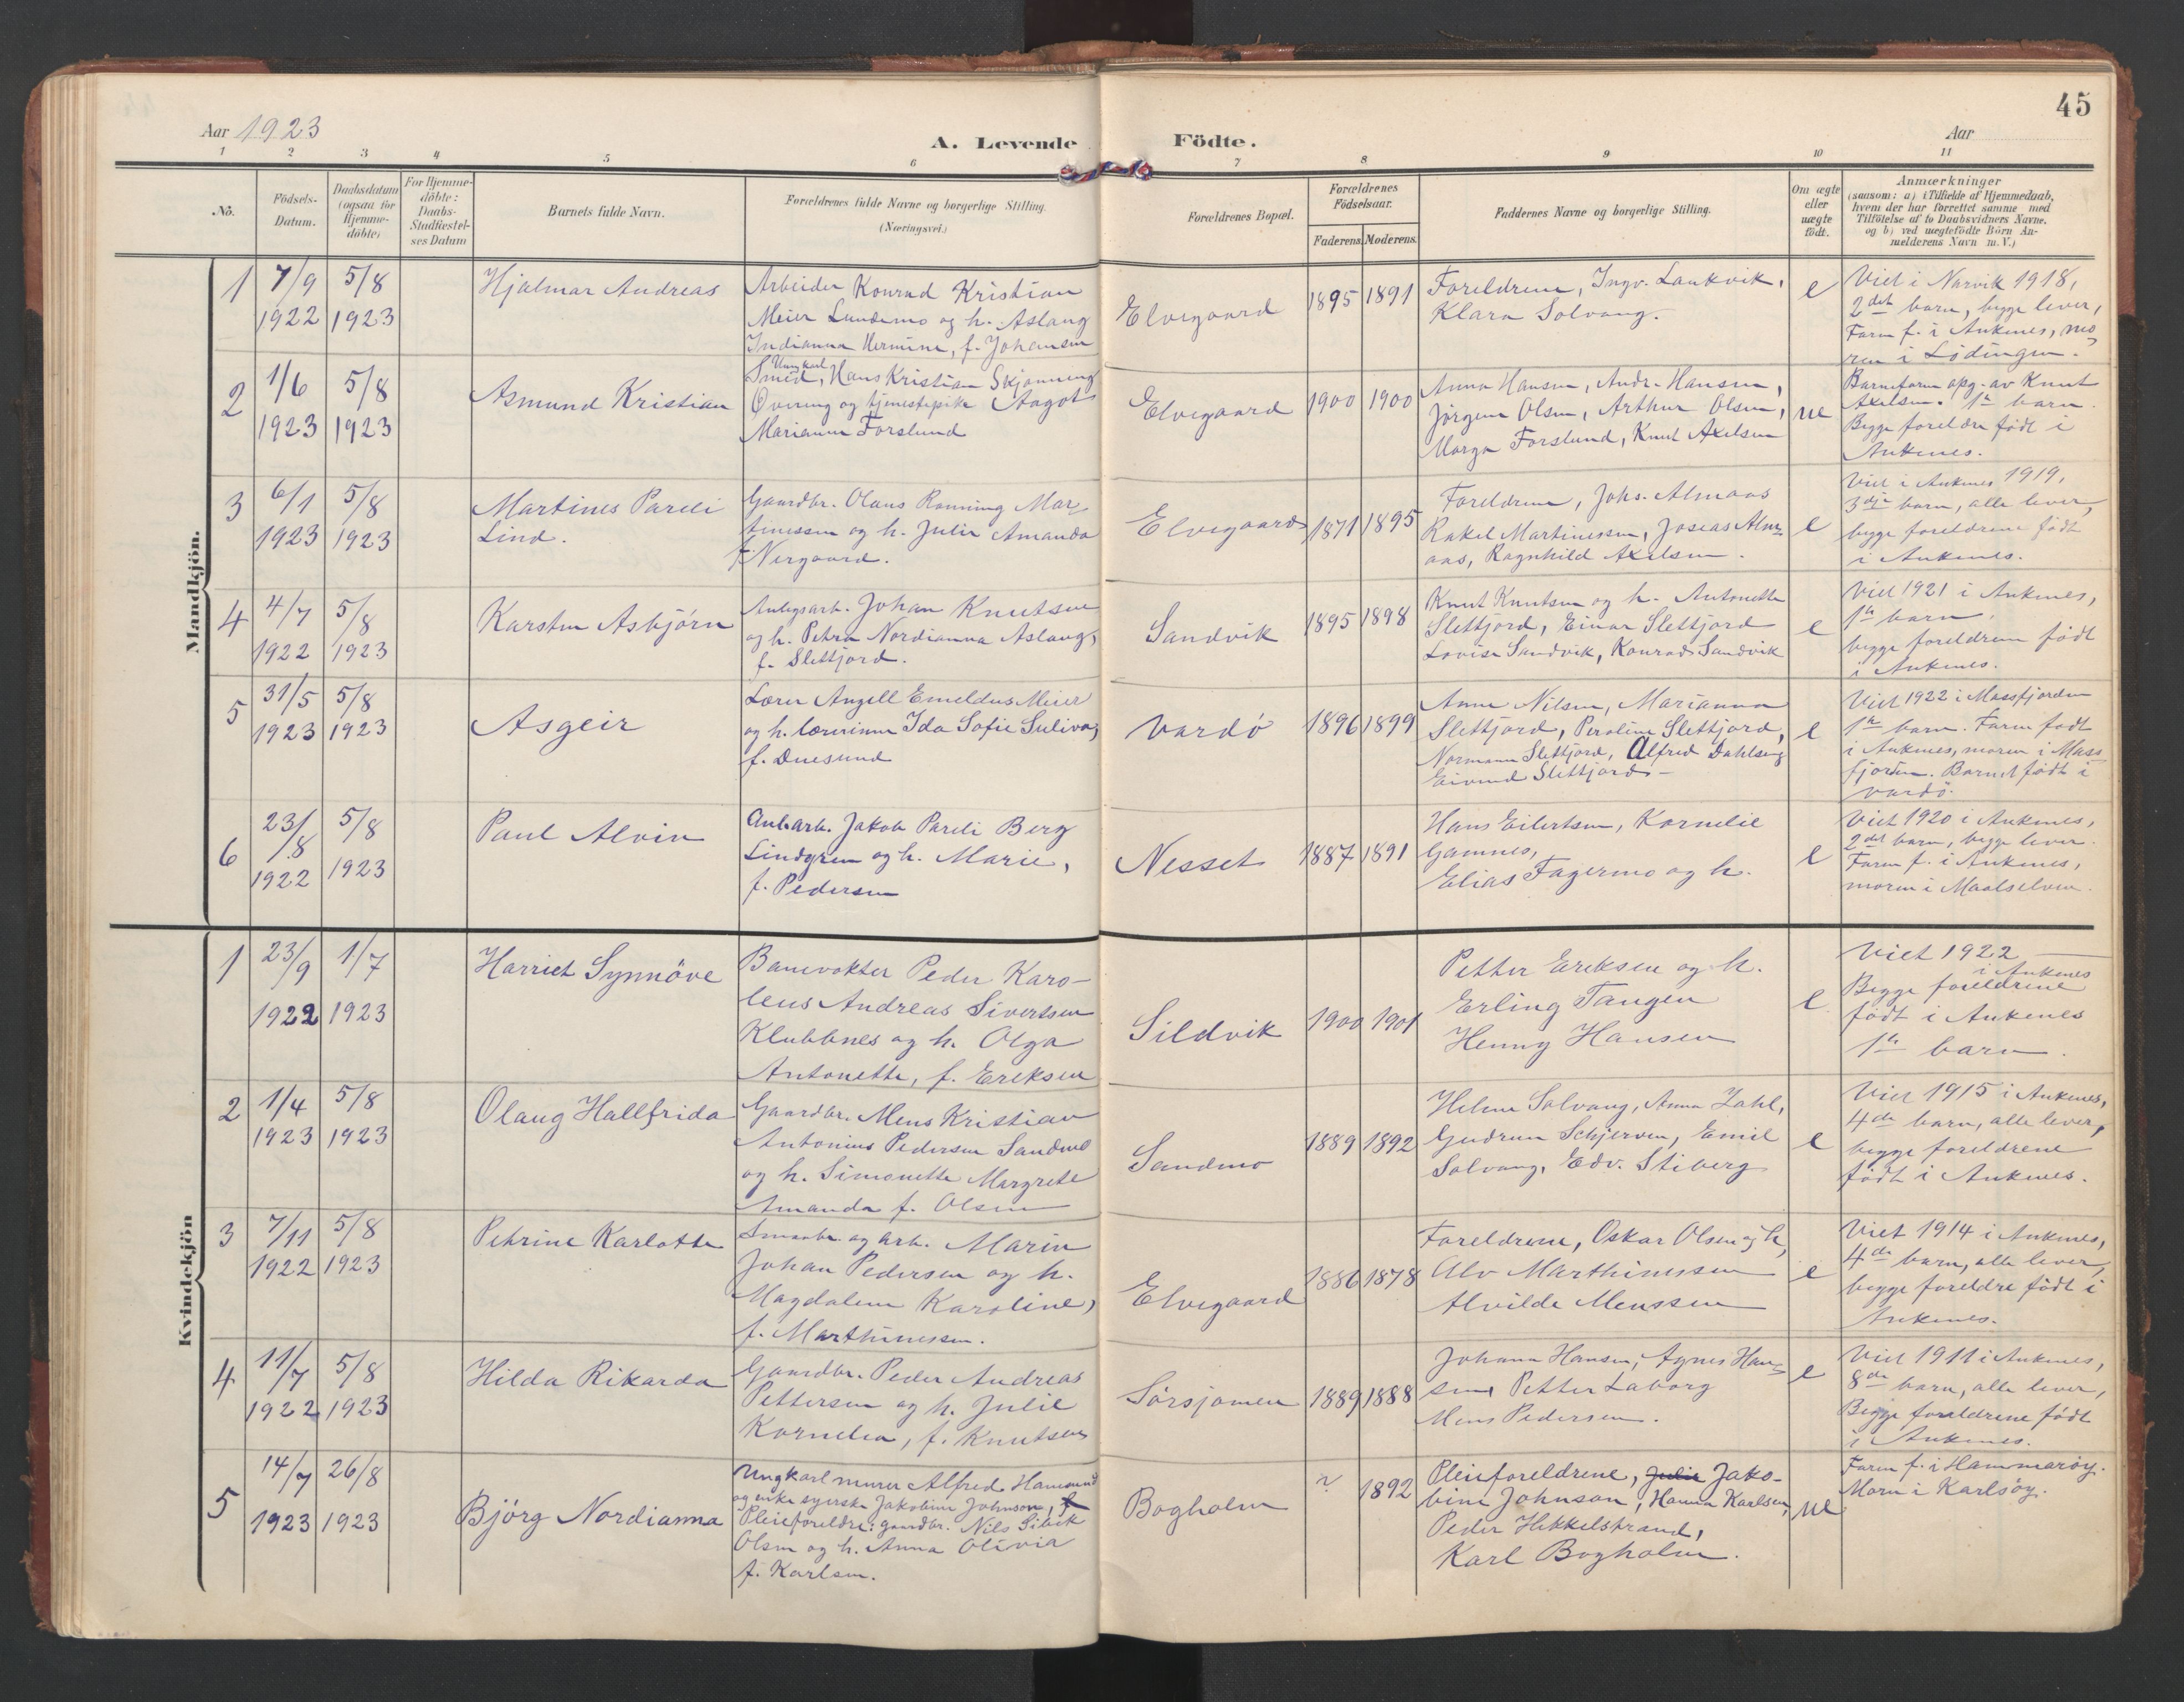 45
Aar 1923
A. Levende Födte.
Aar
1 2 3 4 5 6 7 8 9 10 11
No.
Födsels-
Datum.
Daabsdatum
(ogsaa for
Hjemme-
döbte)
For Hjemme-
döbte:
Daabs-
Stadfæstel-
ses Datum
Barnets fulde Navn.
Forældrenes fulde Navne og borgerlige Stilling.
(Næringsvei.)
Forældrenes Bopæl.
Forældrenes
Födselsaar.
Faderens. Moderens.
Faddernes Navne og borgerlige Stilling.
Om ægte
eller
uægte
födt.
Anmærkninger
(saasom: a) i Tilfælde af Hjemmedaab,
hvem der har forrettet samme med
Tilföielse af to Daabsvidners Navne.
og b) ved uægtefödte Börn An-
melderens Navn m. V.)
Mandkjön.
1
7/9
1922
5/8
1923
Hjalmar Andreas
Arbeider Konrad Kristian
Meier Lundemo og h. Aslaug
Indianna Hermine, f. Johansen
Elvegaard
1895
1891
Foreldrene, Ingv. Lankvik,
Klara Solvang.
e
Viet i Narvik 1918,
2det barn, begge lever,
Faren f. i Ankenes, mo-
ren i Lödingen.
2
1/6
1923
5/8
1923
Asmund Kristian
Ungkarl
Smed, Hans Kristian Skjönning
Overeng og tjenestepike Aagot
Marianne Forslund
Elvegaard
1900
1900
Anna Hansen, Andr. Hansen,
Jörgine Olsen, Arthur Olsen,
Marga Forslund, Knut Axelsen
ue
Barnefaren opg. av Knut
Axelsen. 1te barn.
Begge foreldre født i
Ankenes.
3
6/1
1923
5/8
1923
Martines Pareli
Lind.
Gaardbr. Olaus Rönning Mar-
tinessen og h. Julie Amanda
f. Nergaard.
Elvegaard
1871
1895
Foreldrene, Johs. Almaas
Rakel Martinessen, Joseas Alm-
aas, Ragnhild Axelsen.
e
Viet i Ankenes 1919,
3dje barn, alle lever,
begge foreldrene født
i Ankenes.
4
4/7
1922
5/8
1923
Karsten Asbjörn
Anlegsarb. Johan Knutsen
og h. Petra Nordianna Aslaug,
f. Slettjord.
Sandvik
1895
1898
Knut Knutsen og h. Antonette
Slettjord, Einar Slettjord
Lovise Sandvik, Konrad Sandvik
e
Viet 1921 i Ankenes,
1te barn,
begge foreldrene født
i Ankenes.
5
31/5
1923
5/8
1923
Asgeir
Lærer Angell Emeldus Meier
og h. lærerinne Ida Sofie Suliva,
f. Duesund
Vardö
1896
1899
Anna Nilsen, Marianna
Slettjord, Peroline Slettjord,
Normann Slettjord, Alfred Dahlseng
Eivind Slettjord
e
Viet 1922 i Massfjorden
1te barn. Faren født
i Ankenes, moren i Mass-
fjorden. Barnet født i
Vardö.
6
23/8
1922
5/8
1923
Paul Alvin
Anl.arb. Jakob Pareli Berg
Lindgren og h. Marie,
f. Pedersen
Nesset
1887
1891
Hans Eilertsen, Kornelie
Gamnes,
Elias Fagermo og h.
e
Viet 1920 i Ankenes,
2det barn, begge lever.
Faren f. i Ankenes,
moren i Maalselven.
Kvindekjön
1
23/9
1922
1/7
1923
Harriet Synnöve
Banevokter Peder Karo-
leus Andreas Sivertsen
Klubbnes og h. Olga
Antonette, f. Eriksen
Sildvik
1900
1901
Petter Eriksen og h.
Erling Tangen
Henny Hansen
e
Viet 1922
i Ankenes
Begge foreldrene
født i Ankenes
1te barn.
2
1/4
1923
5/8
1923
Olaug Hallfrida
Gaardbr. Mens Kristian
Antonius Pedersen Sandmo
og h. Simonette Margrete
Amanda f. Olsen
Sandmo
1889
1892
Helene Solvang, Anna Zahl,
Gudrun Schjerven, Emil
Solvang, Edv. Stiberg
e
Viet 1915 i Ankenes,
4de barn, alle lever,
begge foreldrene
født i Ankenes.
3
7/11
1922
5/8
1923
Petrine Karlotte
Smaabr. og arb. Marin
Johan Pedersen og h.
Magdalena Karoline,
f. Marthinessen.
Elvegaard
1886
1878
Foreldrene, Oskar Olsen og h,
Alv Marthinessen
Alvilde Menssen
e
Viet 1914 i Ankenes,
4de barn, alle lever,
begge foreldre født i
Ankenes.
4
11/7
1922
5/8
1923
Hilda Rikarda
Gaardbr. Peder Andreas
Pettersen og h. Julie
Kornelia, f. Knutsen
Sörsjomen
1889
1888
Johanna Hansen, Agnes Han-
sen, Petter Laborg
Mens Pedersen.
e
Viet 1911 i Ankenes,
8de barn, alle lever,
Begge foreldrene født
i Ankenes.
5
14/7
1923
26/8
1923
Björg Nordianna
Ungkarl murer Alfred Hamsund
og enke syerske Jakobine Johnson,
Pleieforeldre: gaardbr. Nils
Olsen og h. Anna Olivia
f. Karlsen.
Bogholm
?
1892
Pleieforeldrene, Julie Jako-
bine Johnson, Hanna Karlsen,
Peder Hekkelstrand,
Karl Bogholm.
ue
Faren f. i Hammaröy.
Moren i Karlsöy.